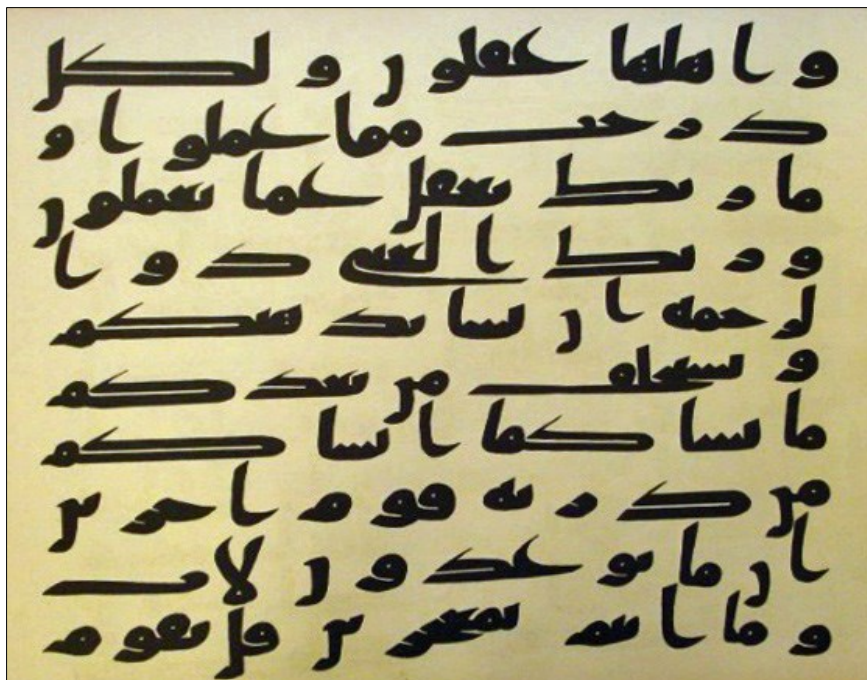 واهلها غفلون ولكل
درجت مما عملوا و
ما ربك بغفل عما يعملون
وربك الغني ذو ا
لرحمة ان يشا يذهبكم
ويستخلف من بعدكم
ما يشا كما انشاكم
من ذرية قوم اخرين
ان ما توعدون لات
وما انتم بمعجزين قل يقوم